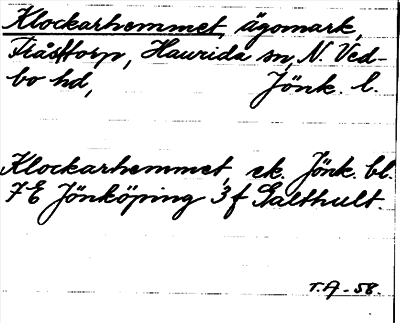 Klockarhemmet, ägomark,
Fråstorp, Haurida sn, N. Ved-
bo hd, Jönk. l.
Klockarhemmet, ek. Jönk. bl.
7E Jönköping 3f Galthult.
T.A-58.